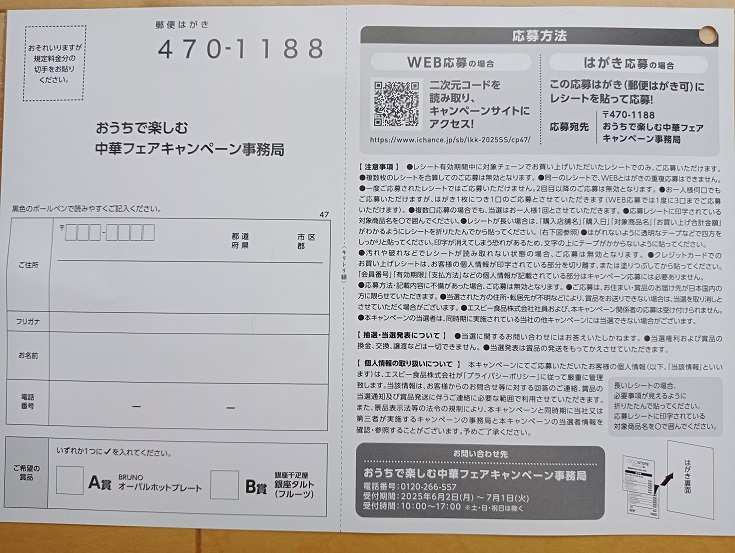 郵便はがき
470-1188
おそれいりますが
規定料金分の
切手をお貼り
ください。
おうちで楽しむ
中華フェアキャンペーン事務局
黒色のボールペンで読みやすくご記入ください。
47
ご住所
〒
都道
府県
市区
郡
フリガナ
お名前
電話
番号
ー ー
ご希望の
賞品
いずれか1つに✓を入れてください。
A賞
BRUNO
オーバルホットプレート
B賞
銀座千疋屋
銀座タルト
(フルーツ)
キリトリ線
応募方法
WEB応募の場合
二次元コードを
読み取り、
キャンペーンサイトに
アクセス!
https://www.ichance.jp/sb/lkk-2025SS/cp47/
はがき応募の場合
この応募はがき(郵便はがき可)に
レシートを貼って応募!
応募宛先
〒470-1188
おうちで楽しむ中華フェア
キャンペーン事務局
【注意事項】 ●レシート有効期間中に対象チェーンでお買い上げいただいたレシートでのみ、ご応募いただけます。
●複数枚のレシートを合算してのご応募は無効となります。●同一のレシートで、WEBとはがきの重複応募はできません。
●一度ご応募されたレシートではご応募いただけません。2回目以降のご応募は無効となります。●お一人様何口でも
ご応募いただけますが、はがき1枚につき1口のご応募とさせていただきます(WEB応募では1度に3口までご応募
いただけます)。●複数口応募の場合でも、当選はお一人様1回とさせていただきます。●応募レシートに印字されている
対象商品名を○で囲んでください。●レシートが長い場合は、「購入店舗名」「購入日」「対象商品名」「お買い上げ合計金額」
がわかるようにレシートを折りたたんでから貼ってください。(右下図参照) ●はがれないように透明なテープなどで四方を
しっかりと貼ってください。印字が消えてしまう恐れがあるため、文字の上にテープがかからないように貼ってください。
●汚れや破れなどでレシートが読み取れない状態の場合、ご応募は無効となります。●クレジットカードでの
お買い上げレシートは、お客様の個人情報が印字されている部分を切り離す、または塗りつぶしてから貼ってください。
「会員番号」「有効期限」「支払方法」などの個人情報が記載されている部分はキャンペーン応募には必要ありません。
●応募方法・記載内容に不備があった場合、ご応募は無効となります。●ご応募は、お住まい・賞品のお届け先が日本国内の
方に限らせていただきます。●当選された方の住所・転居先が不明などにより、賞品をお送りできない場合は、当選を取り消しと
させていただく場合がございます。●エスビー食品株式会社社員および、本キャンペーン関係者の応募は受け付けられません。
●本キャンペーンの当選者は、同時期に実施されている当社の他キャンペーンには当選できない場合がございます。
【抽選・当選発表について】 ●当選に関するお問い合わせにはお答えいたしかねます。●当選権利および賞品の
換金、交換、譲渡などは一切できません。●当選発表は賞品の発送をもってかえさせていただきます。
【個人情報の取り扱いについて】 本キャンペーンにてご応募いただいたお客様の個人情報(以下、「当該情報」といい
ます)は、エスビー食品株式会社が「プライバシーポリシー」に従って厳重に管理
致します。当該情報は、お客様からのお問合せ等に対する回答のご連絡、賞品の
当選通知及び賞品発送に伴うご連絡に必要な範囲で利用させていただきます。
また、景品表示法等の法令の規制により、本キャンペーンと同時期に当社又は
第三者が実施するキャンペーンの事務局と本キャンペーンの当選者情報を
確認・参照することがございます。予めご了承ください。
長いレシートの場合、
必要事項が見えるように
折りたたんで貼ってください。
応募レシートに印字されている
対象商品名を○で囲んでください。
はがき裏面
お問い合わせ先
おうちで楽しむ中華フェアキャンペーン事務局
電話番号:0120-266-557
受付期間:2025年6月2日(月)～7月1日(火)
受付時間:10:00～17:00 ※土・日・祝日は除く